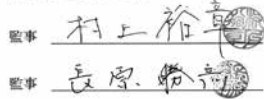 監事 村上裕章
監事 長原勝高